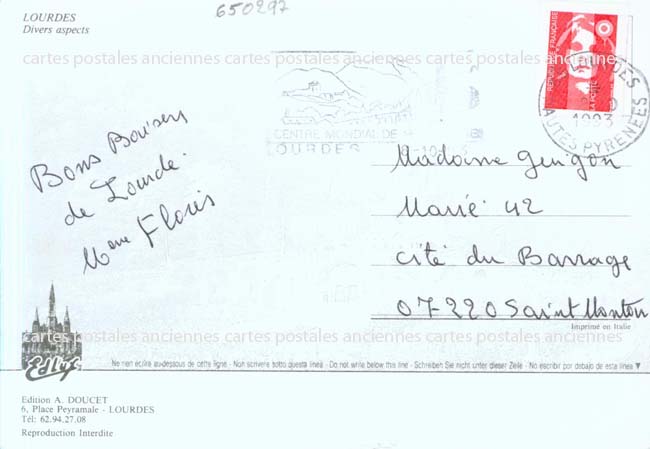 650297
LOURDES
Divers aspects
REPUBLIQUE FRANÇAISE
LA POSTE
LOURDES
1993
HAUTES PYRENEES
cartes postales anciennes cartes postales anciennes cartes postales anciennes
CENTRE MONDIAL DE
LOURDES
Bons Baisers
de Lourde.
Mme Floris
Madame
Marie 42
cité du Barrage
07220 Saint Monton
Imprimé en Italie
cartes postales anciennes cartes postales anciennes cartes postales anciennes
cartes postales anciennes cartes postales anciennes cartes postales anciennes
Edlys
Ne rien écrire au-dessous de cette ligne - Non scrivere sotto questa linea - Do not write below this line - Schreiben Sie nicht unter dieser Zeile - No escribir por debajo de esta línea ▼
Edition A. DOUCET
6, Place Peyramale - LOURDES
Tél: 62.94.27.08
Reproduction Interdite